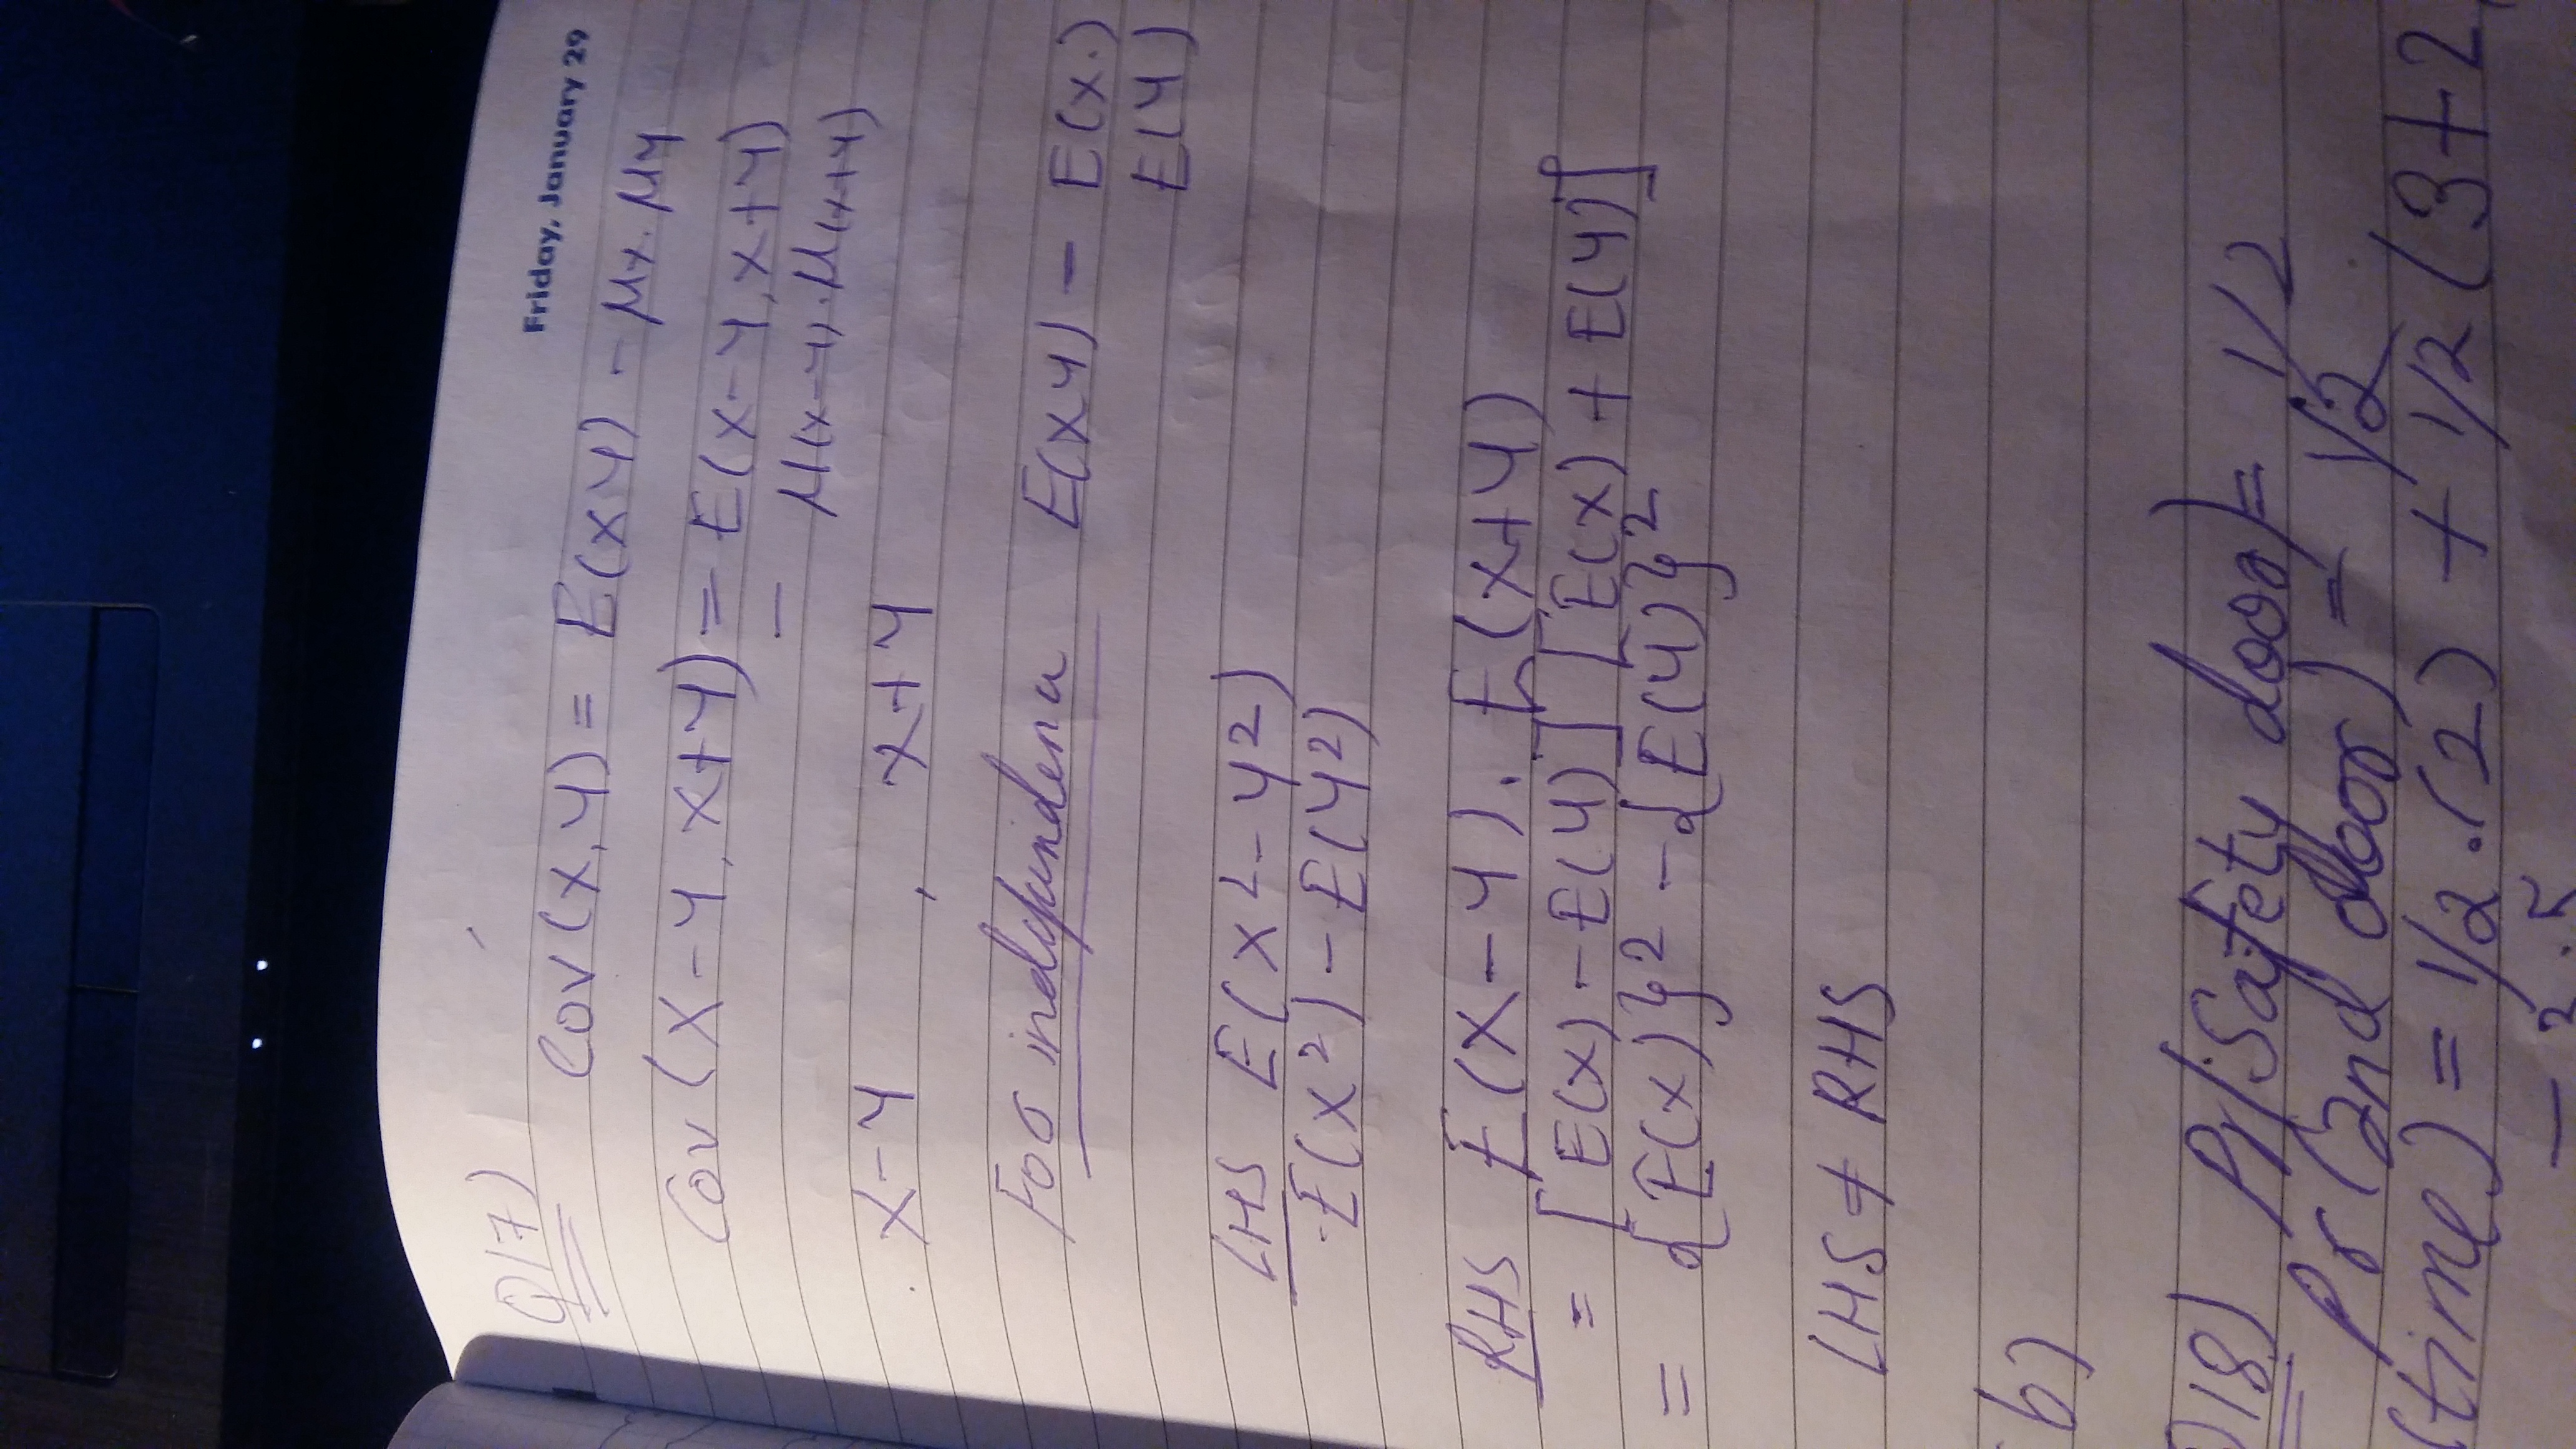 Friday, January 29
Q17)
Cov(x,y) = E(xy) - μx.μy
Cov(x-y, x+y) = E(x-y, x+y)
- μ(x-y).μ(x+y)
x-y , x+y
For independena E(xy) - E(x.)
E(y)
LHS E(x²-y²)
E(x²) - E(y²)
RHS E(x-y). E(x+y)
= [E(x) - E(y)] [E(x) + E(y)]
= {E(x)}² - {E(y)}²
LHS ≠ RHS
b)
Q18) Pr(Safety door) = 1/2
Pr(2nd door) = 1/2
(time) = 1/2.(2) + 1/2(3+2